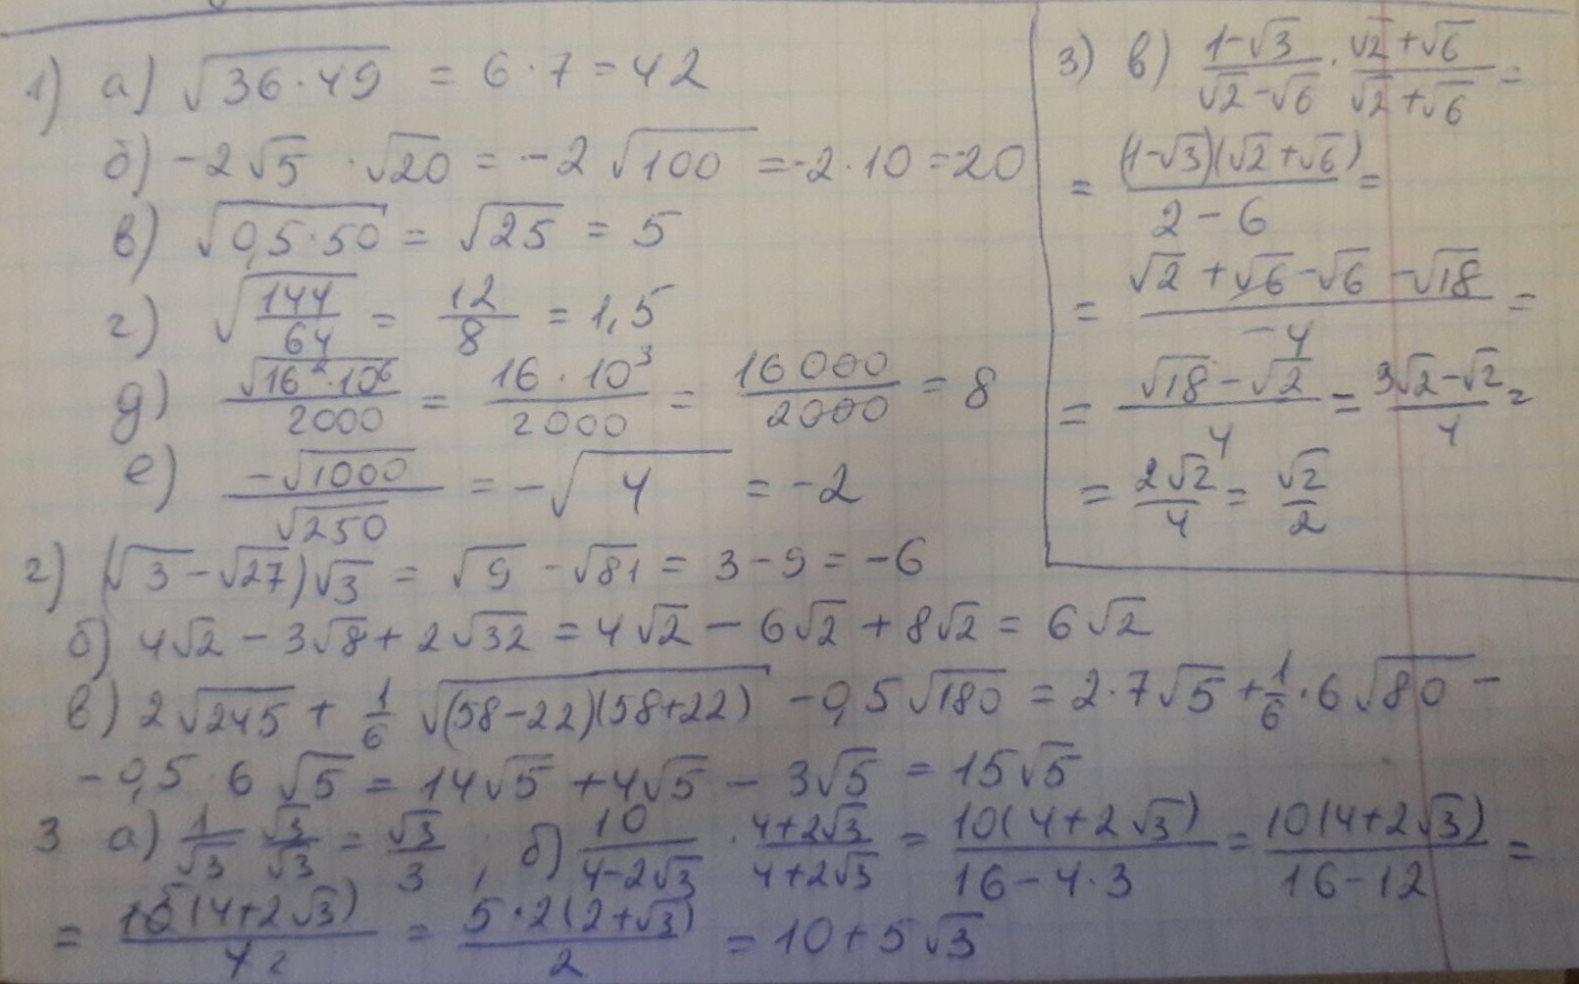 1) а) √(36·49) = 6·7 = 42
б) -2√5 ·√20 = -2√100 = -2·10 = -20
в) √(0,5·50) = √25 = 5
г) √(144/64) = 12/8 = 1,5
д) √(16²·10⁶)/2000 = 16·10³/2000 = 16000/2000 = 8
е) -√1000/√250 = -√4 = -2
2) (√3-√27)√3 = √9 - √81 = 3-9 = -6
б) 4√2 - 3√8 + 2√32 = 4√2 - 6√2 + 8√2 = 6√2
в) 2√245 + 1/6 √((58-22)(58+22)) - 0,5√180 = 2·7√5 + 1/6·6√80 -
- 0,5·6√5 = 14√5 + 4√5 - 3√5 = 15√5
3 а) 1/√3 √3/√3 = √3/3 ; б) 10/(4-2√3) · (4+2√3)/(4+2√3) = 10(4+2√3)/(16-4·3) = 10(4+2√3)/(16-12) =
= 10(4+2√3)/4 2 = 5·2(2+√3)/2 = 10+5√3
3) в) (1-√3)/(√2-√6) · (√2+√6)/(√2+√6) =
= (1-√3)(√2+√6)/(2-6) =
= (√2+√6-√6-√18)/(-4) =
= (√18-√2)/4 = (3√2-√2)/4 =
= 2√2/4 = √2/2